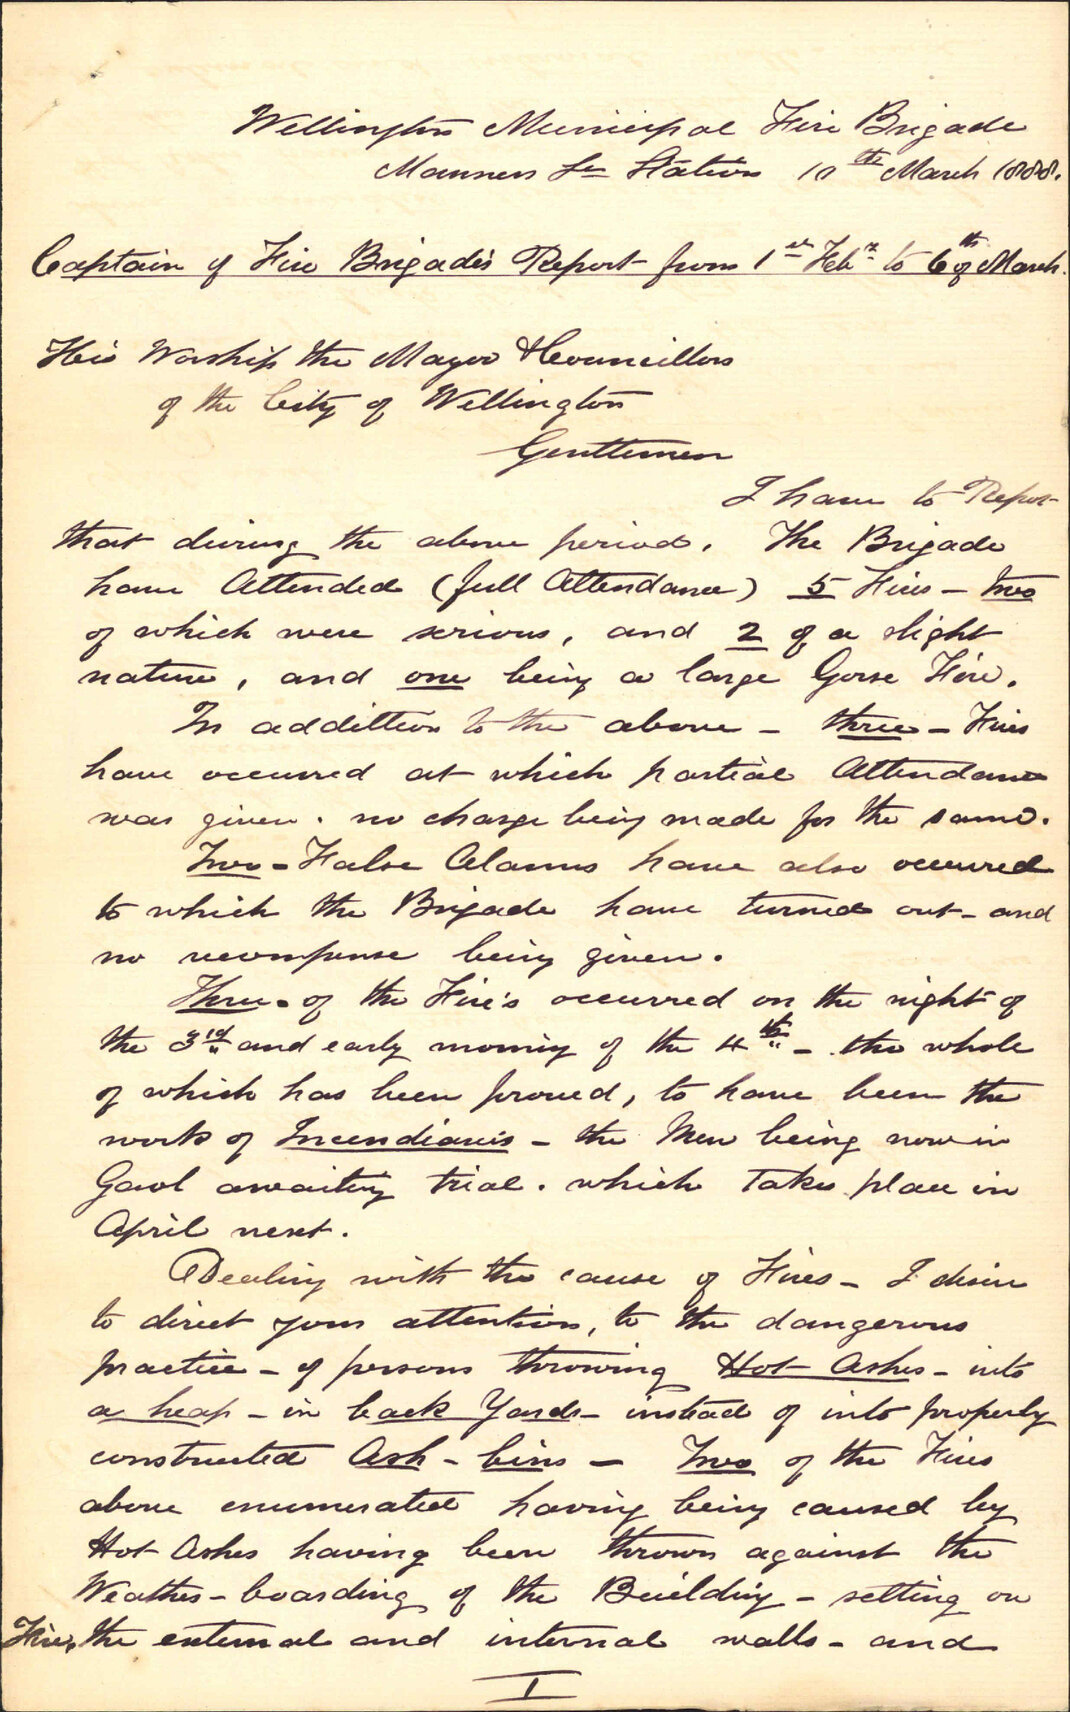 Wellington Municipal Fire Brigade
Manners St Station 10th March 1888.
Captain of Fire Brigade's Report from 1st Feby to 6th of March.
His Worship the Mayor & Councillors
of the City of Wellington
Gentlemen
I have to Report
that during the above period. The Brigade
have Attended (full Attendance) 5 Fires - two
of which were serious, and 2 of a slight
nature, and one being a large Gorse Fire.
In addittion to the above - three - Fires
have occurred at which partial Attendance
was given. no charge being made for the same.
Two - False Alarms have also occurred
to which the Brigade have turned out - and
no recompense being given.
Three - of the Fire's occurred on the night of
the 3rd and early morning of the 4th - the whole
of which has been proved, to have been the
work of Incendiaries - the Men being now in
Gaol awaiting trial. which takes place in
April next.
Dealing with the cause of Fires - I desire
to direct your attention, to the dangerous
practice - of persons throwing Hot Ashes - into
a heap - in back Yards - instead of into properly
constructed Ash - bins - Two of the Fires
above enumerated having being caused by
Hot Ashes having been thrown against the
Weather - boarding of the Building - setting on
Fire, the external and internal walls - and
I